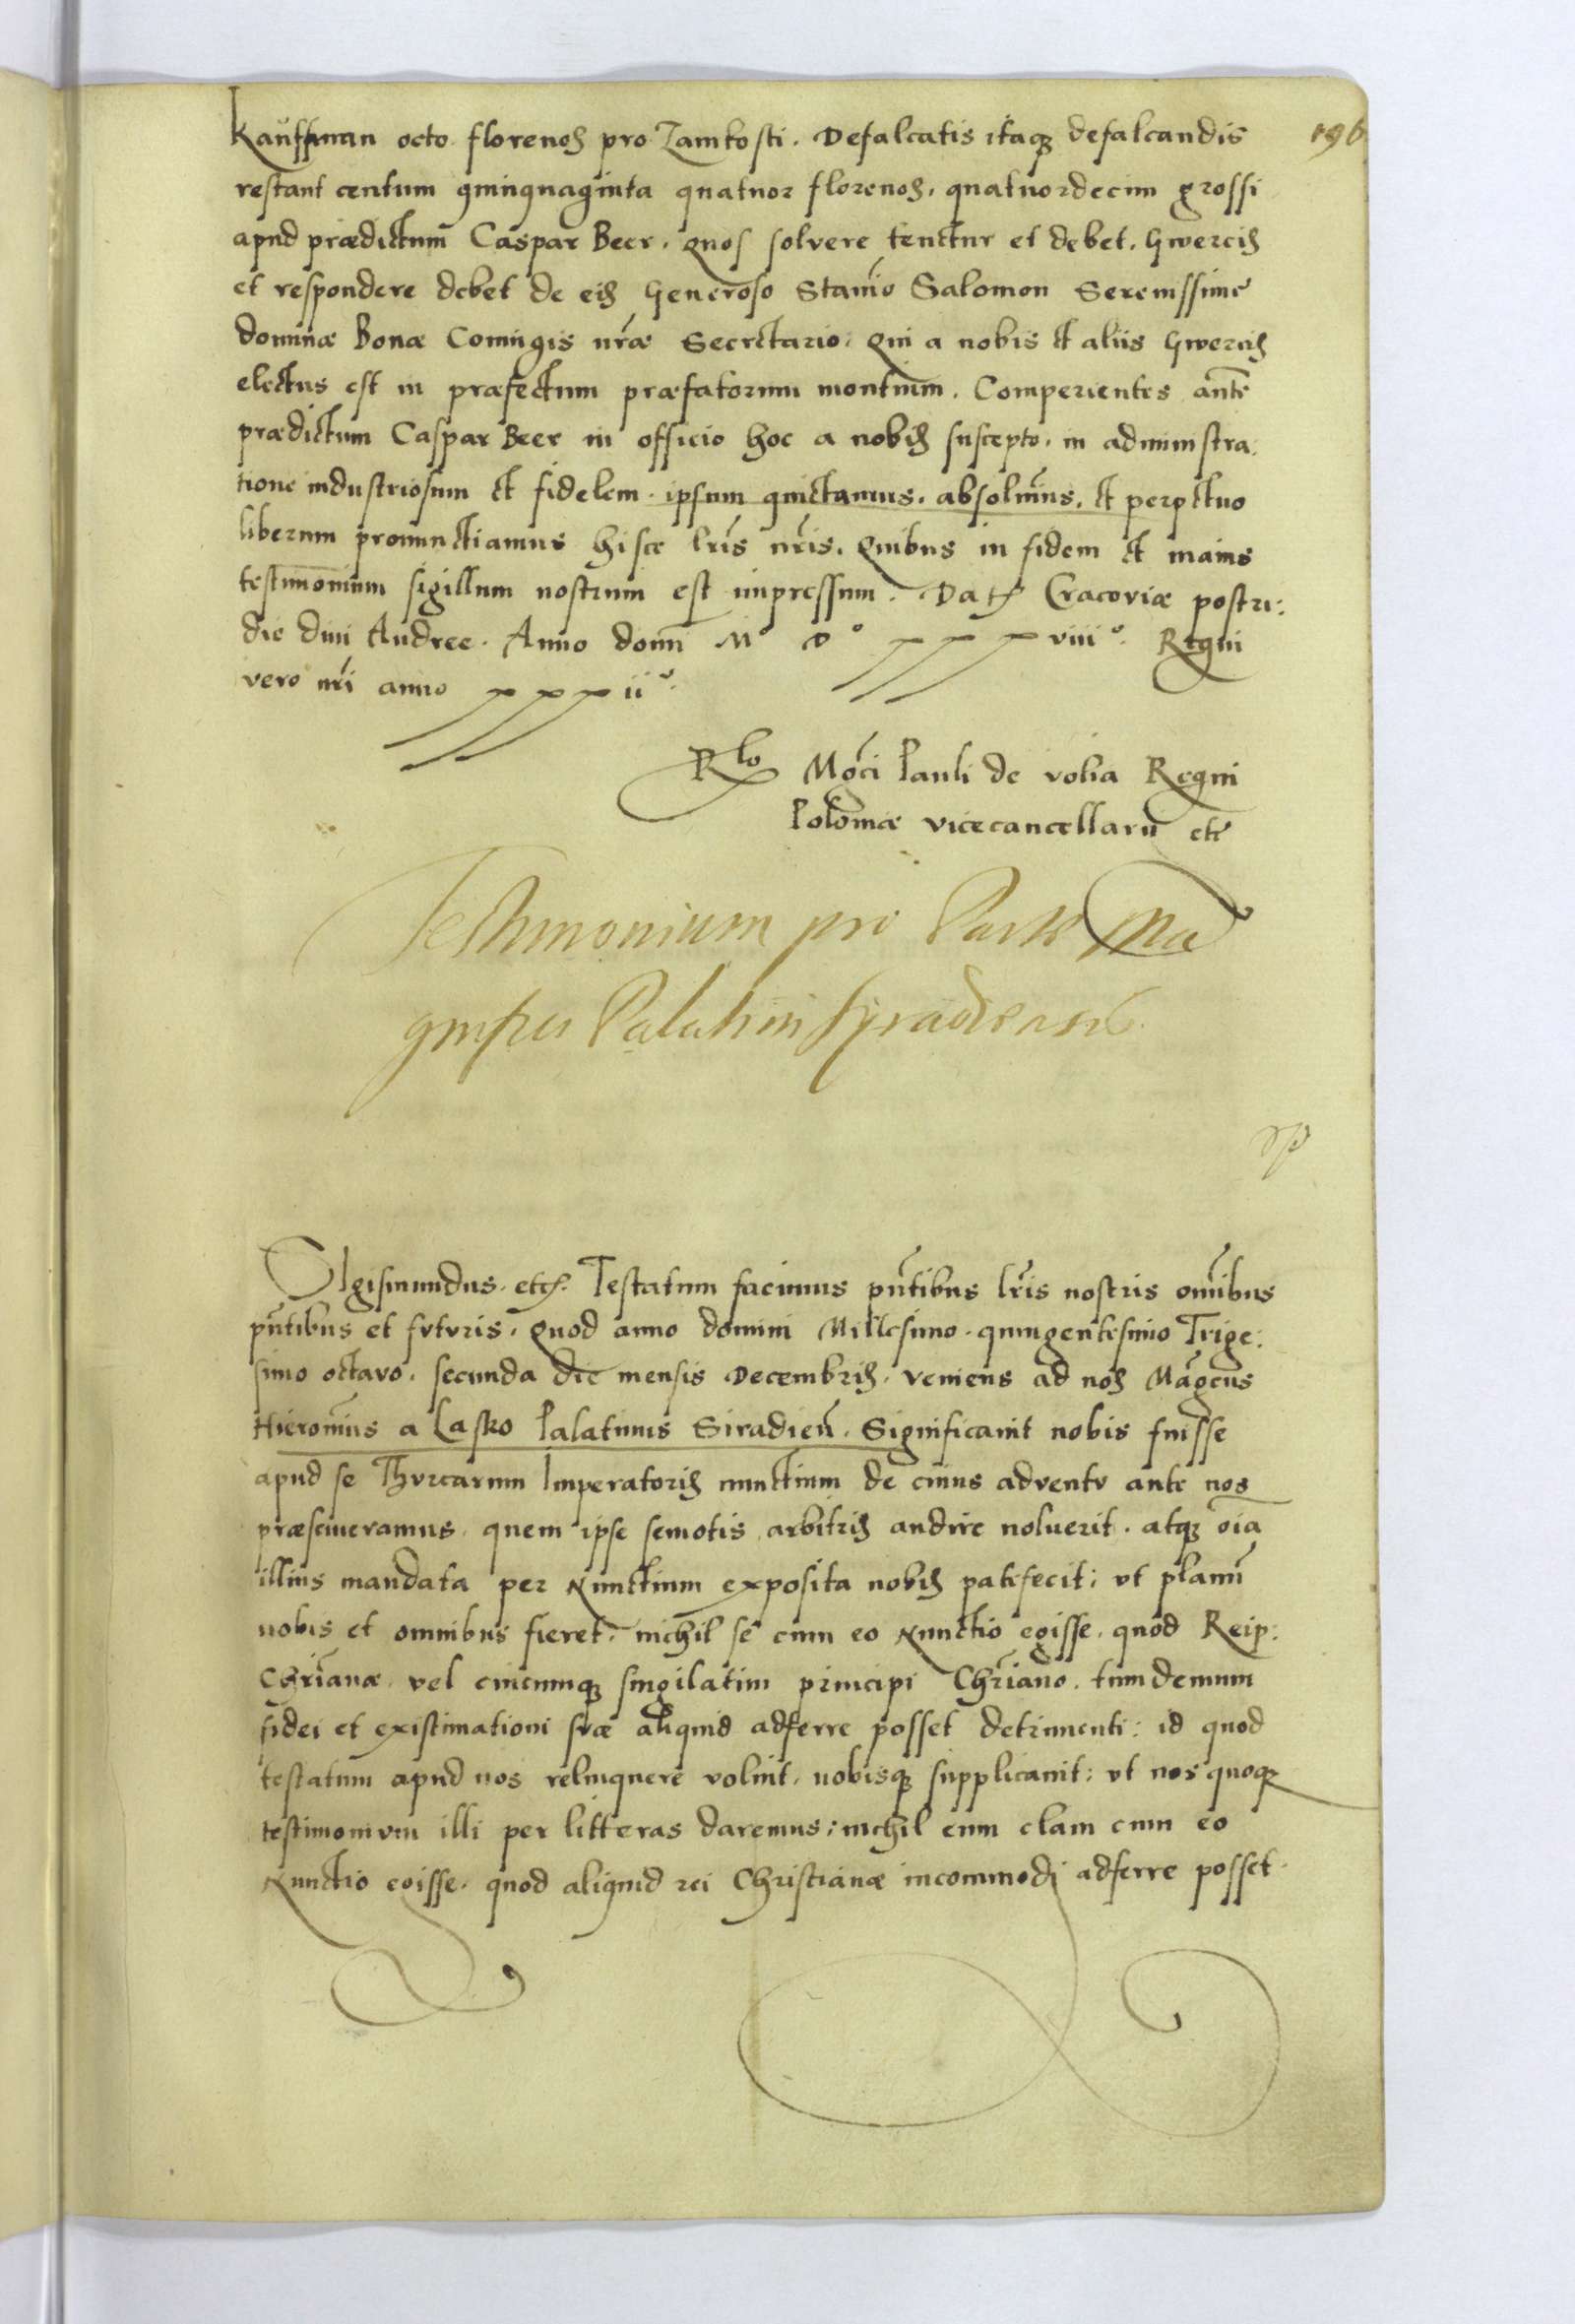 196
Kauffman octo florenos pro Zamkosti. Defalcatis itaq₃ defalcandis
restant centum quinquaginta quatuor florenos, quatuordecim grossi
apud prædictum Caspar Beer. Quos solvere tenetur et debet. Gwercis
et respondere debet de eis Generoso Stanio Salomon Serenissime
dominæ Bonæ Coniugis nræ Secretario. Qui a nobis et aliis Gwercis
electus est in præfectum præfatorum montium. Comperientes ante
prædictum Caspar Beer in officio hoc a nobis suscepto, in administra.
tione industriosum et fidelem. ipsum quictamus. absolvimus. et perpetuo
liberum pronunctiamus hisce lris nris. Quibus in fidem et maius
testimonium sigillum nostrum est impressum. Dat Cracoviæ postri:
die divi Andree. Anno domi M° D° xxxviii°. Regni
vero nri anno xxxii°.
Rlo Mgci Pauli de volia Regni
Poloniæ vicecancellarii etc
Testimonium pro Parte Ma
gnifici Palatini Syradiensis
Sigismundus. etc. Testatum facimus pntibus lris nostris omibus
pntibus et fvtvris, Quod anno domini Millesimo. quingentesimo Trige:
simo octavo, secunda die mensis Decembris, veniens ad nos Magcus
Hieronius a Lasko Palatinus Siradien. Significavit nobis fuisse
apud se Thvrcarum Imperatoris nunctium de cuius adventv ante nos
præsciveramus, quem ipse semotis arbitris audire noluerit. atq₃ oia
illius mandata per Nunctium exposita nobis patefecit; vt planum
nobis et omnibus fieret, nichil se cum eo Nunctio egisse. quod Reip:
Chrianæ, vel cuicumq₃ singilatim principi Chriano, tum demum
fidei et existimationi svæ aliquid adferre posset detrimenti: id quod
testatum apud nos relinquere voluit, nobisq₃ supplicavit; vt nos quoq₃
testimonivm illi per litteras daremus; nichil eum clam cum eo
Nunctio egisse. quod aliquid rei Christianæ incommodi adferre posset.